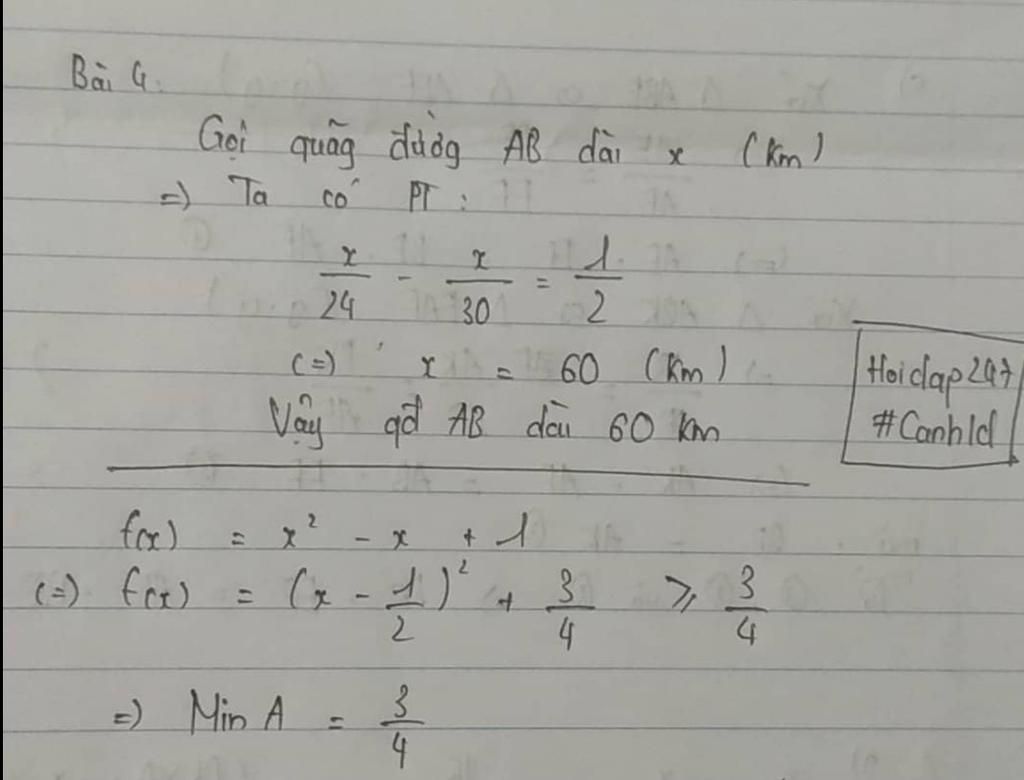 Bài 4.
Gọi quãng đường AB dài x (km)
=) Ta có PT :
x/24 - x/30 = 1/2
(=) x = 60 (km)
Vậy qđ AB dài 60 km
Hoidap247
#Canhld
f(x) = x² - x + 1
(=) f(x) = (x - 1/2)² + 3/4 ⩾ 3/4
=) Min A = 3/4